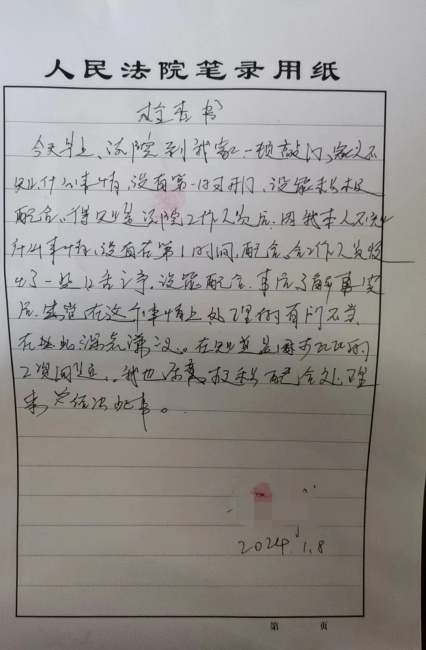 人民法院笔录用纸
检查书
今天早上,法院到我家一顿敲门,家人不
知什么事情,没有第一时间开门,没能积极
配合,得知是法院工作人员后,因我本人不知
什么事情,没有在第1时间,配合,与工作人员发
生了一些口舌之争,没能配合,事后了解事实
后,感觉在这个事情上处理的有所不当
在此深表谦议。在知道是因为
工资问题,我也愿意积极配合处理
来
2024.1.8
第 页